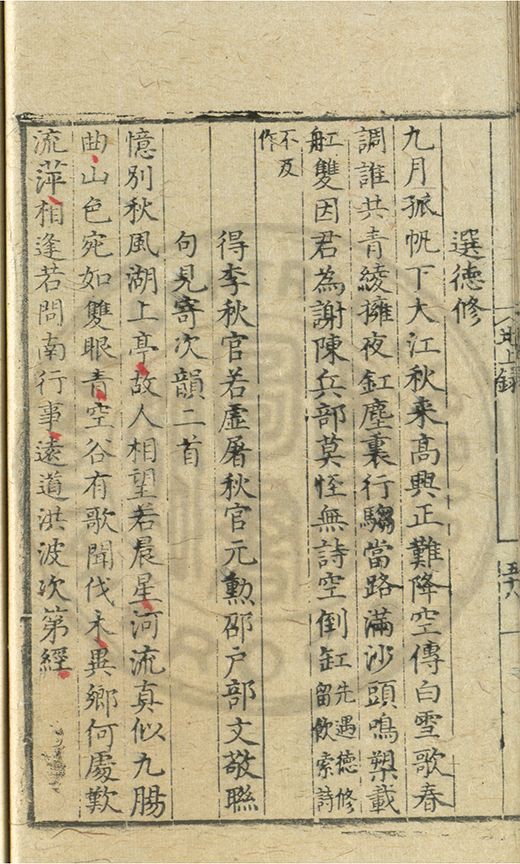 選德修
九月孤帆下大江秋来高興正難降空傳白雪歌春
調誰共青綾擁夜缸塵裏行騶當路滿沙頭鳴槳載
舡雙因君為謝陳兵部莫恠無詩空倒缸缸先遇德修留飲索詩
不及作
得李秋官若虛屠秋官元勳邵户部文敬聯
句見寄次韻二首
憶别秋風湖上亭故人相望若晨星河流真似九腸
曲山色宛如雙眼青空谷有歌聞伐木異鄉何處歎
流萍相逢若問南行事遠道洪波次第經
五十八